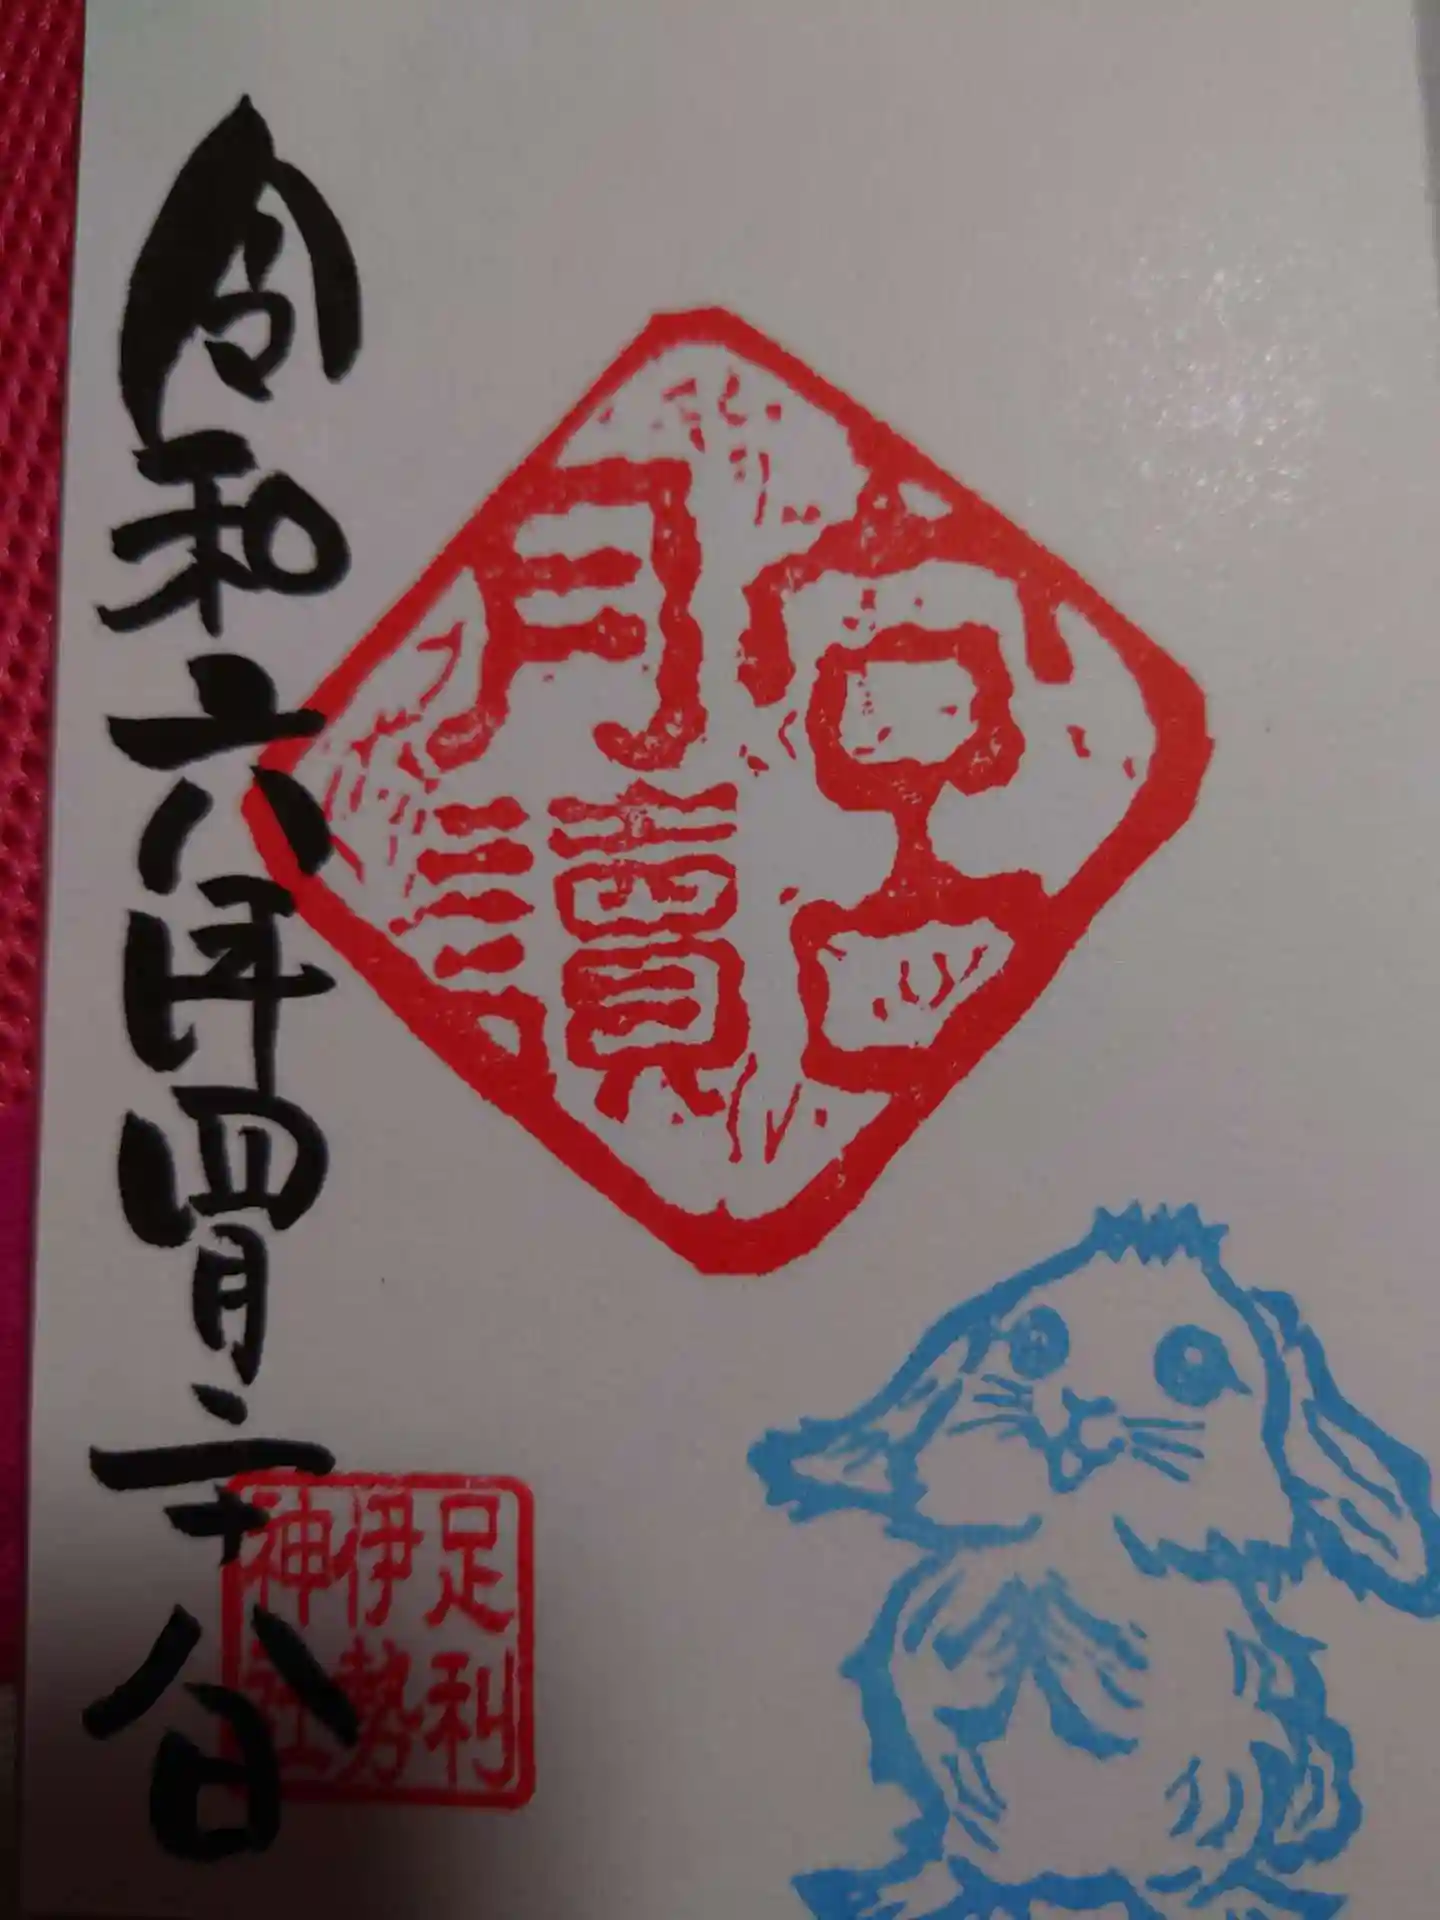 月讀宮
令和六年四月二十八日
足利
伊勢
神社